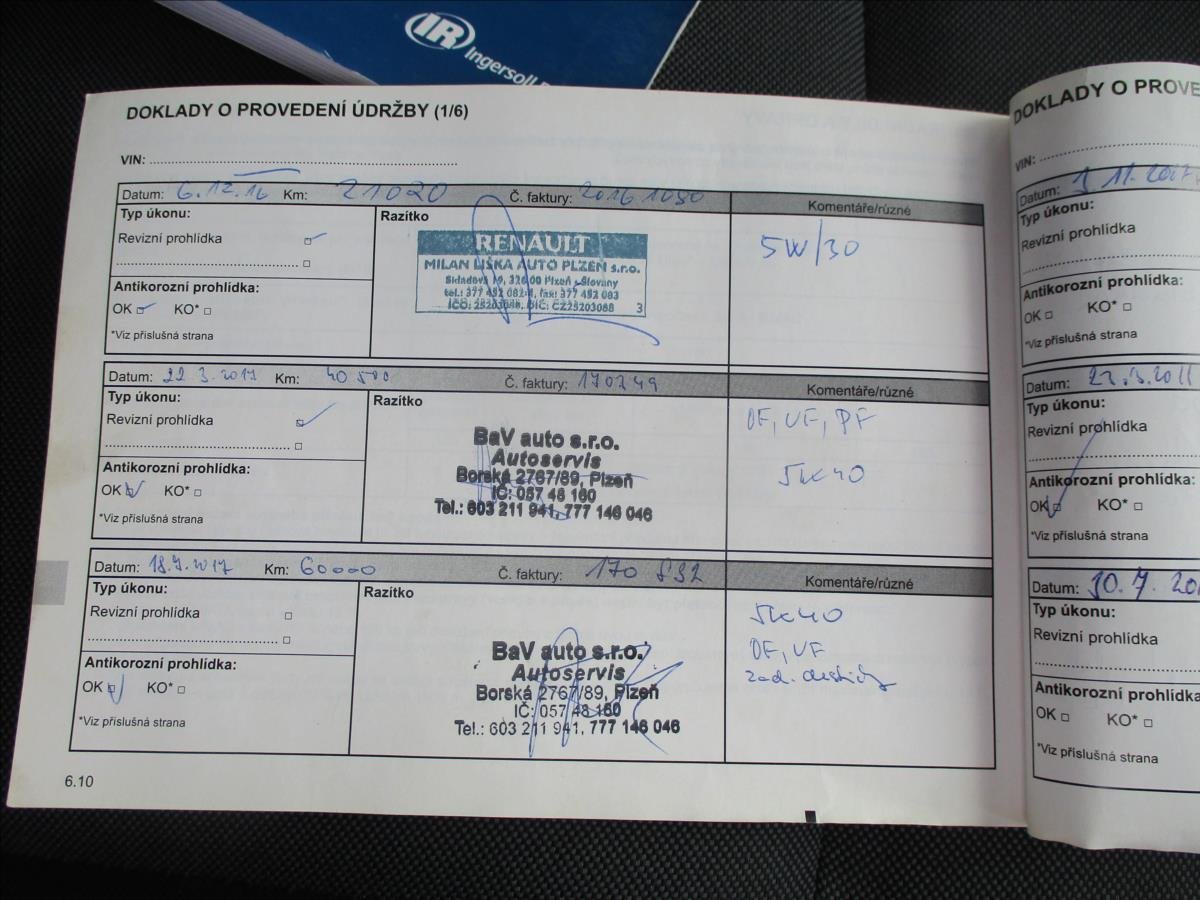 IR Ingersoll
DOKLADY O PROVEDENÍ ÚDRŽBY (1/6)
VIN:
Datum: 6.12.16 Km: 21020 Č. faktury: 20161080 Komentáře/různé
Typ úkonu:
Revizní prohlídka
Antikorozní prohlídka:
OK KO*
*Viz příslušná strana
Razítko
RENAULT
MILAN LIŠKA AUTO PLZEŇ s.r.o.
Skladová 19, 326 00 Plzeň - Slovany
tel.: 377 452 082-4, fax: 377 452 083
IČO: 25203088, DIČ: CZ25203088 3
5W/30
Datum: 22.3.2017 Km: 40 500 Č. faktury: 170249 Komentáře/různé
Typ úkonu:
Revizní prohlídka
Antikorozní prohlídka:
OK KO*
*Viz příslušná strana
Razítko
BaV auto s.r.o.
Autoservis
Borská 2767/89, Plzeň
IČ: 057 48 160
Tel.: 603 211 941, 777 146 046
OF, VF, PF
5W40
Datum: 18.7.2017 Km: 60000 Č. faktury: 170 832 Komentáře/různé
Typ úkonu:
Revizní prohlídka
Antikorozní prohlídka:
OK KO*
*Viz příslušná strana
Razítko
BaV auto s.r.o.
Autoservis
Borská 2767/89, Plzeň
IČ: 057 48 160
Tel.: 603 211 941, 777 146 046
5W40
OF, VF
zad. destičky
6.10
DOKLADY O PROVE
VIN:
Datum: 11.2017
Typ úkonu:
Revizní prohlídka
Antikorozní prohlídka:
OK KO*
*Viz příslušná strana
Datum:
Typ úkonu:
Revizní prohlídka
Antikorozní prohlídka:
OK KO*
*Viz příslušná strana
Datum: 10.7.
Typ úkonu:
Revizní prohlídka
Antikorozní prohlídka
OK KO*
*Viz příslušná strana